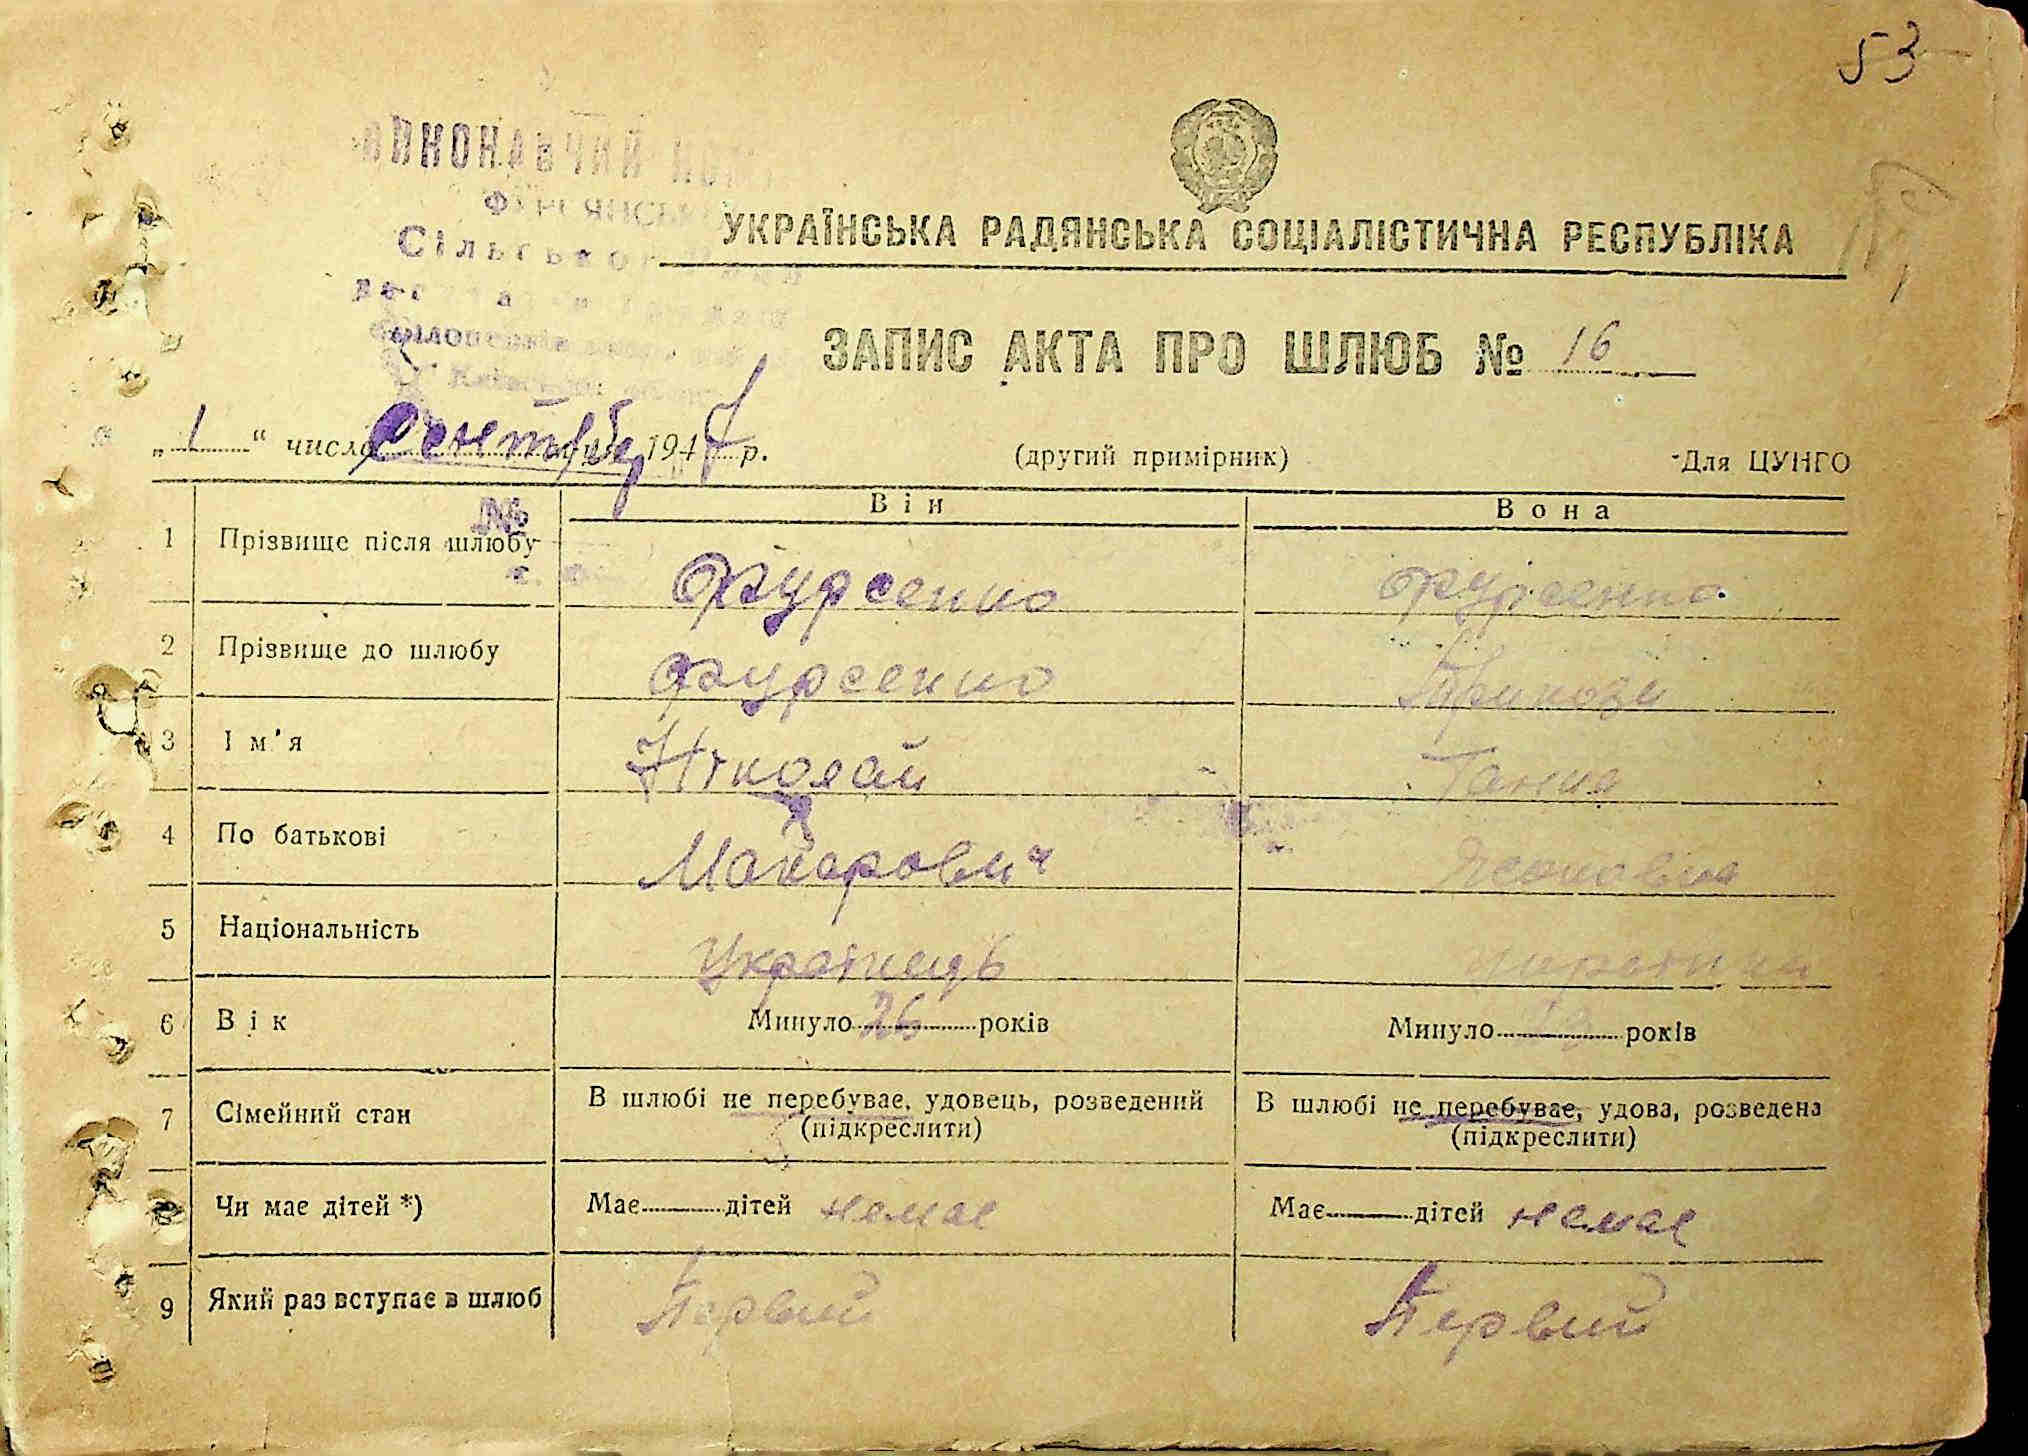 53
Сільської
УКРАЇНСЬКА РАДЯНСЬКА СОЦІАЛІСТИЧНА РЕСПУБЛІКА
ЗАПИС АКТА ПРО ШЛЮБ № 16
„1“ число Сентябр 1947 р. (другий примірник) Для ЦУНГО
Він Вона
1 Прізвище після шлюбу Фурсенко Фурсенко
2 Прізвище до шлюбу Фурсенко
3 Ім'я Николай Ганна
4 По батькові Макарович
5 Національність Українець
6 Вік Минуло 26 років Минуло років
7 Сімейний стан В шлюбі не перебуває, удовець, розведений (підкреслити) В шлюбі не перебуває, удова, розведена (підкреслити)
8 Чи має дітей *) Має дітей немає Має дітей немає
9 Який раз вступає в шлюб Первий Первий